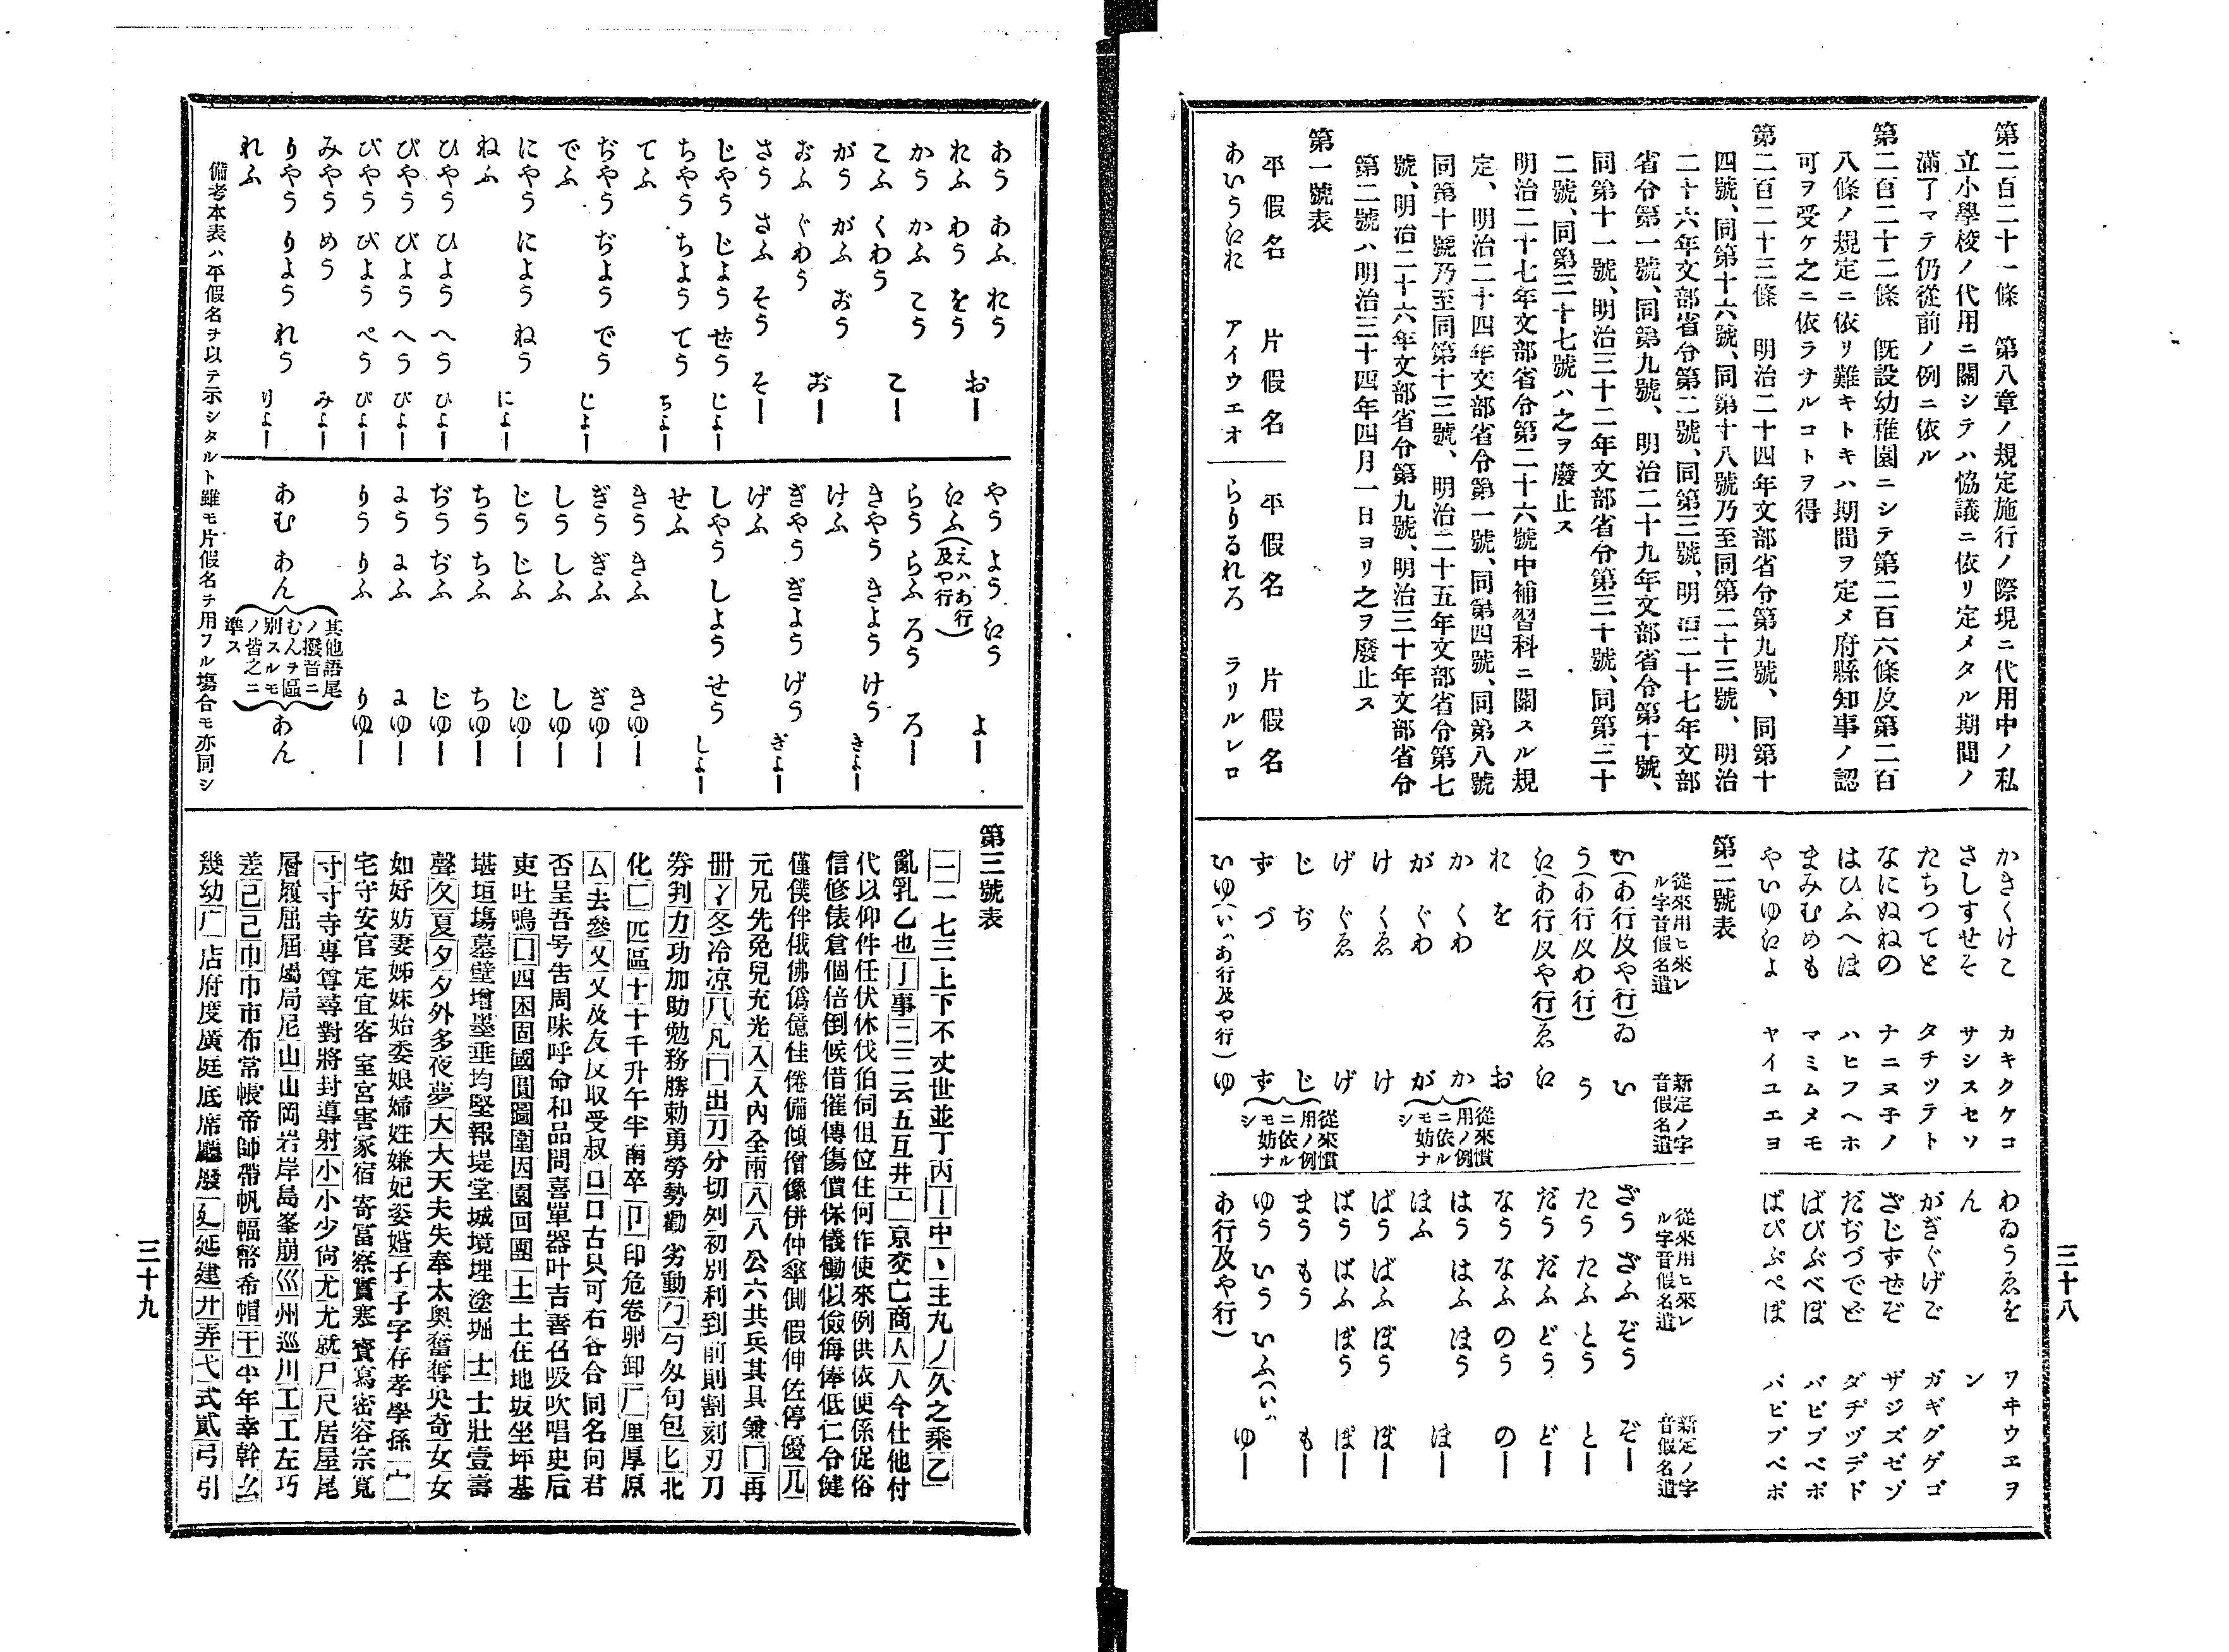 三十八
第二百二十一條　第八章ノ規定施行ノ際現ニ代用中ノ私
立小學校ノ代用ニ關シテハ協議ニ依リ定メタル期間ノ
滿了マテ仍從前ノ例ニ依ル
第二百二十二條　既設幼稚園ニシテ第二百六條及第二百
八條ノ規定ニ依リ難キトキハ期間ヲ定メ府縣知事ノ認
可ヲ受ケ之ニ依ラサルコトヲ得
第二百二十三條　明治二十四年文部省令第九號、同第十
四號、同第十六號、同第十八號乃至同第二十三號、明治
二十六年文部省令第二號、同第三號、明治二十七年文部
省令第一號、同第九號、明治二十九年文部省令第十號、
同第十一號、明治三十二年文部省令第三十號、同第三十
二號、同第三十七號ハ之ヲ廢止ス
明治二十七年文部省令第二十六號中補習科ニ關スル規
定、明治二十四年文部省令第一號、同第四號、同第八號
同第十號乃至同第十三號、明治二十五年文部省令第七
號、明治二十六年文部省令第九號、明治三十年文部省令
第二號ハ明治三十四年四月一日ヨリ之ヲ廢止ス
第一號表
平假名　片假名　平假名　片假名
あいうえお　アイウエオ　らりるれろ　ラリルレロ
かきくけこ　カキクケコ　わゐうゑを　ワヰウヱヲ
さしすせそ　サシスセソ　ん　ン
たちつてと　タチツテト　がぎぐげご　ガギグゲゴ
なにぬねの　ナニヌネノ　ざじずぜぞ　ザジズゼゾ
はひふへほ　ハヒフヘホ　だぢづでど　ダヂヅデド
まみむめも　マミムメモ　ばびぶべぼ　バビブベボ
やいゆえよ　ヤイユエヨ　ぱぴぷぺぽ　パピプペポ
第二號表
從來用ヒ來レル字音假名遣　新定ノ字音假名遣　從來用ヒ來レル字音假名遣　新定ノ字音假名遣
い(あ行及や行)ゐ　い　ざう　ざふ　ぞう　ぞー
う(あ行及わ行)　う　たう　たふ　とう　とー
え(あ行及や行)ゑ　え　だう　だふ　どう　どー
お　を　お　なう　なふ　のう　のー
か　くわ　か　はう　はふ　ほう　ほー
が　ぐわ　が　從來慣用ノ例ニ依ルモ妨ナシ　ほふ
け　くゑ　け　ばう　ばふ　ぼう　ぼー
げ　ぐゑ　げ　ぱう　ぱふ　ぽう　ぽー
じ　ぢ　じ　まう　もう　もー
ず　づ　ず　從來慣用ノ例ニ依ルモ妨ナシ　ゆう　いう　いふ(いハ　ゆー
いゆ(いハあ行及や行)ゆ　あ行及や行)
三十九
あう　あふ　おう　おー
おふ　わう　をう
かう　かふ　こう　こー
こふ　くわう
がう　がふ　おう　お゙ー
おふ　ぐわう
さう　さふ　そう　そー
じやう　じよう　ぜう　じよー
ちやう　ちよう　てう　ちよー
てふ
ぢやう　ぢよう　でう　じよー
でふ
にやう　によう　ねう　によー
ねふ
ひやう　ひよう　へう　ひよー
びやう　びよう　べう　びよー
ぴやう　ぴよう　ぺう　ぴよー
みやう　めう　みよー
りやう　りよう　れう　りよー
れふ
やう　よう　えう　よー
えふ(えハあ行及や行)
らう　らふ　ろう　ろー
きやう　きよう　けう　きよー
けふ
ぎやう　ぎよう　げう　ぎよー
げふ
しやう　しよう　せう　しよー
せふ
きう　きふ　きゆー
ぎう　ぎふ　ぎゆー
しう　しふ　しゆー
じう　じふ　じゆー
ちう　ちふ　ちゆー
ぢう　ぢふ　じゆー
にう　にふ　にゆー
りう　りふ　りゆー
あむ　あん　其他語尾ノ撥音ニむんヲ區別スルモノ皆之ニ準ス　あん
備考本表ハ平假名ヲ以テ示シタルト雖モ片假名ヲ用フル場合モ亦同シ
第三號表
一一七三上下不丈世並丁丙丨中丶主丸ノ久之乘乙
亂乳乙也亅事二二云五互井亠京交亡商人人今仕他付
代以仰件任伏休伐伯伺但位住何作使來例供依便係促俗
信修俵倉個倍倒候借催傳傷償保儀働似儉侮俸低仁令健
僅僕伴俄佛僞億佳倦備傾僧像併仲傘側假伸佐停優儿
元兄先免兒充光入入內全兩八八公六共兵其具兼冂再
册冫冬冷凉几凡凵出刀分切列初別利到前則割刻刃刀
券判力功加助勉務勝勅勇勞勢勸劣動勹勺匁句包匕北
化匚匹區十十千升午半南卒卩印危卷卵卸厂厘厚原
厶去參又又及友反取受叔口口古只可右各合同名向君
否呈吾号告周味呼命和品問喜單器叶吉善召吸吹唱史后
吏吐鳴囗四困固國圓圖圍因園回團土土在地坂坐坪基
堪垣塲墓壁增墨垂均堅報堤堂城境埋塗堀士士壯壹壽
聲夂夏夕夕外多夜夢大大天夫失奉太奧奮奪央奇女女
如好妨妻姊妹始委娘婦姓嫌妃姿婚子子字存孝學孫宀
宅守安官定宜客室宮害家宿寄富察實寒寳寫密容宗寬
寸寸寺專尊尋對將封導射小小少尙尢尤就尸尺居屋尾
層履屈屆屬局尼山山岡岩岸島峯崩巛州巡川工工左巧
差己己巾巾市布常帳帝師帶帆幅幣希帽干半年幸幹幺
幾幼广店府度廣庭底席廳廢廴延建廾弄弋式貳弓引